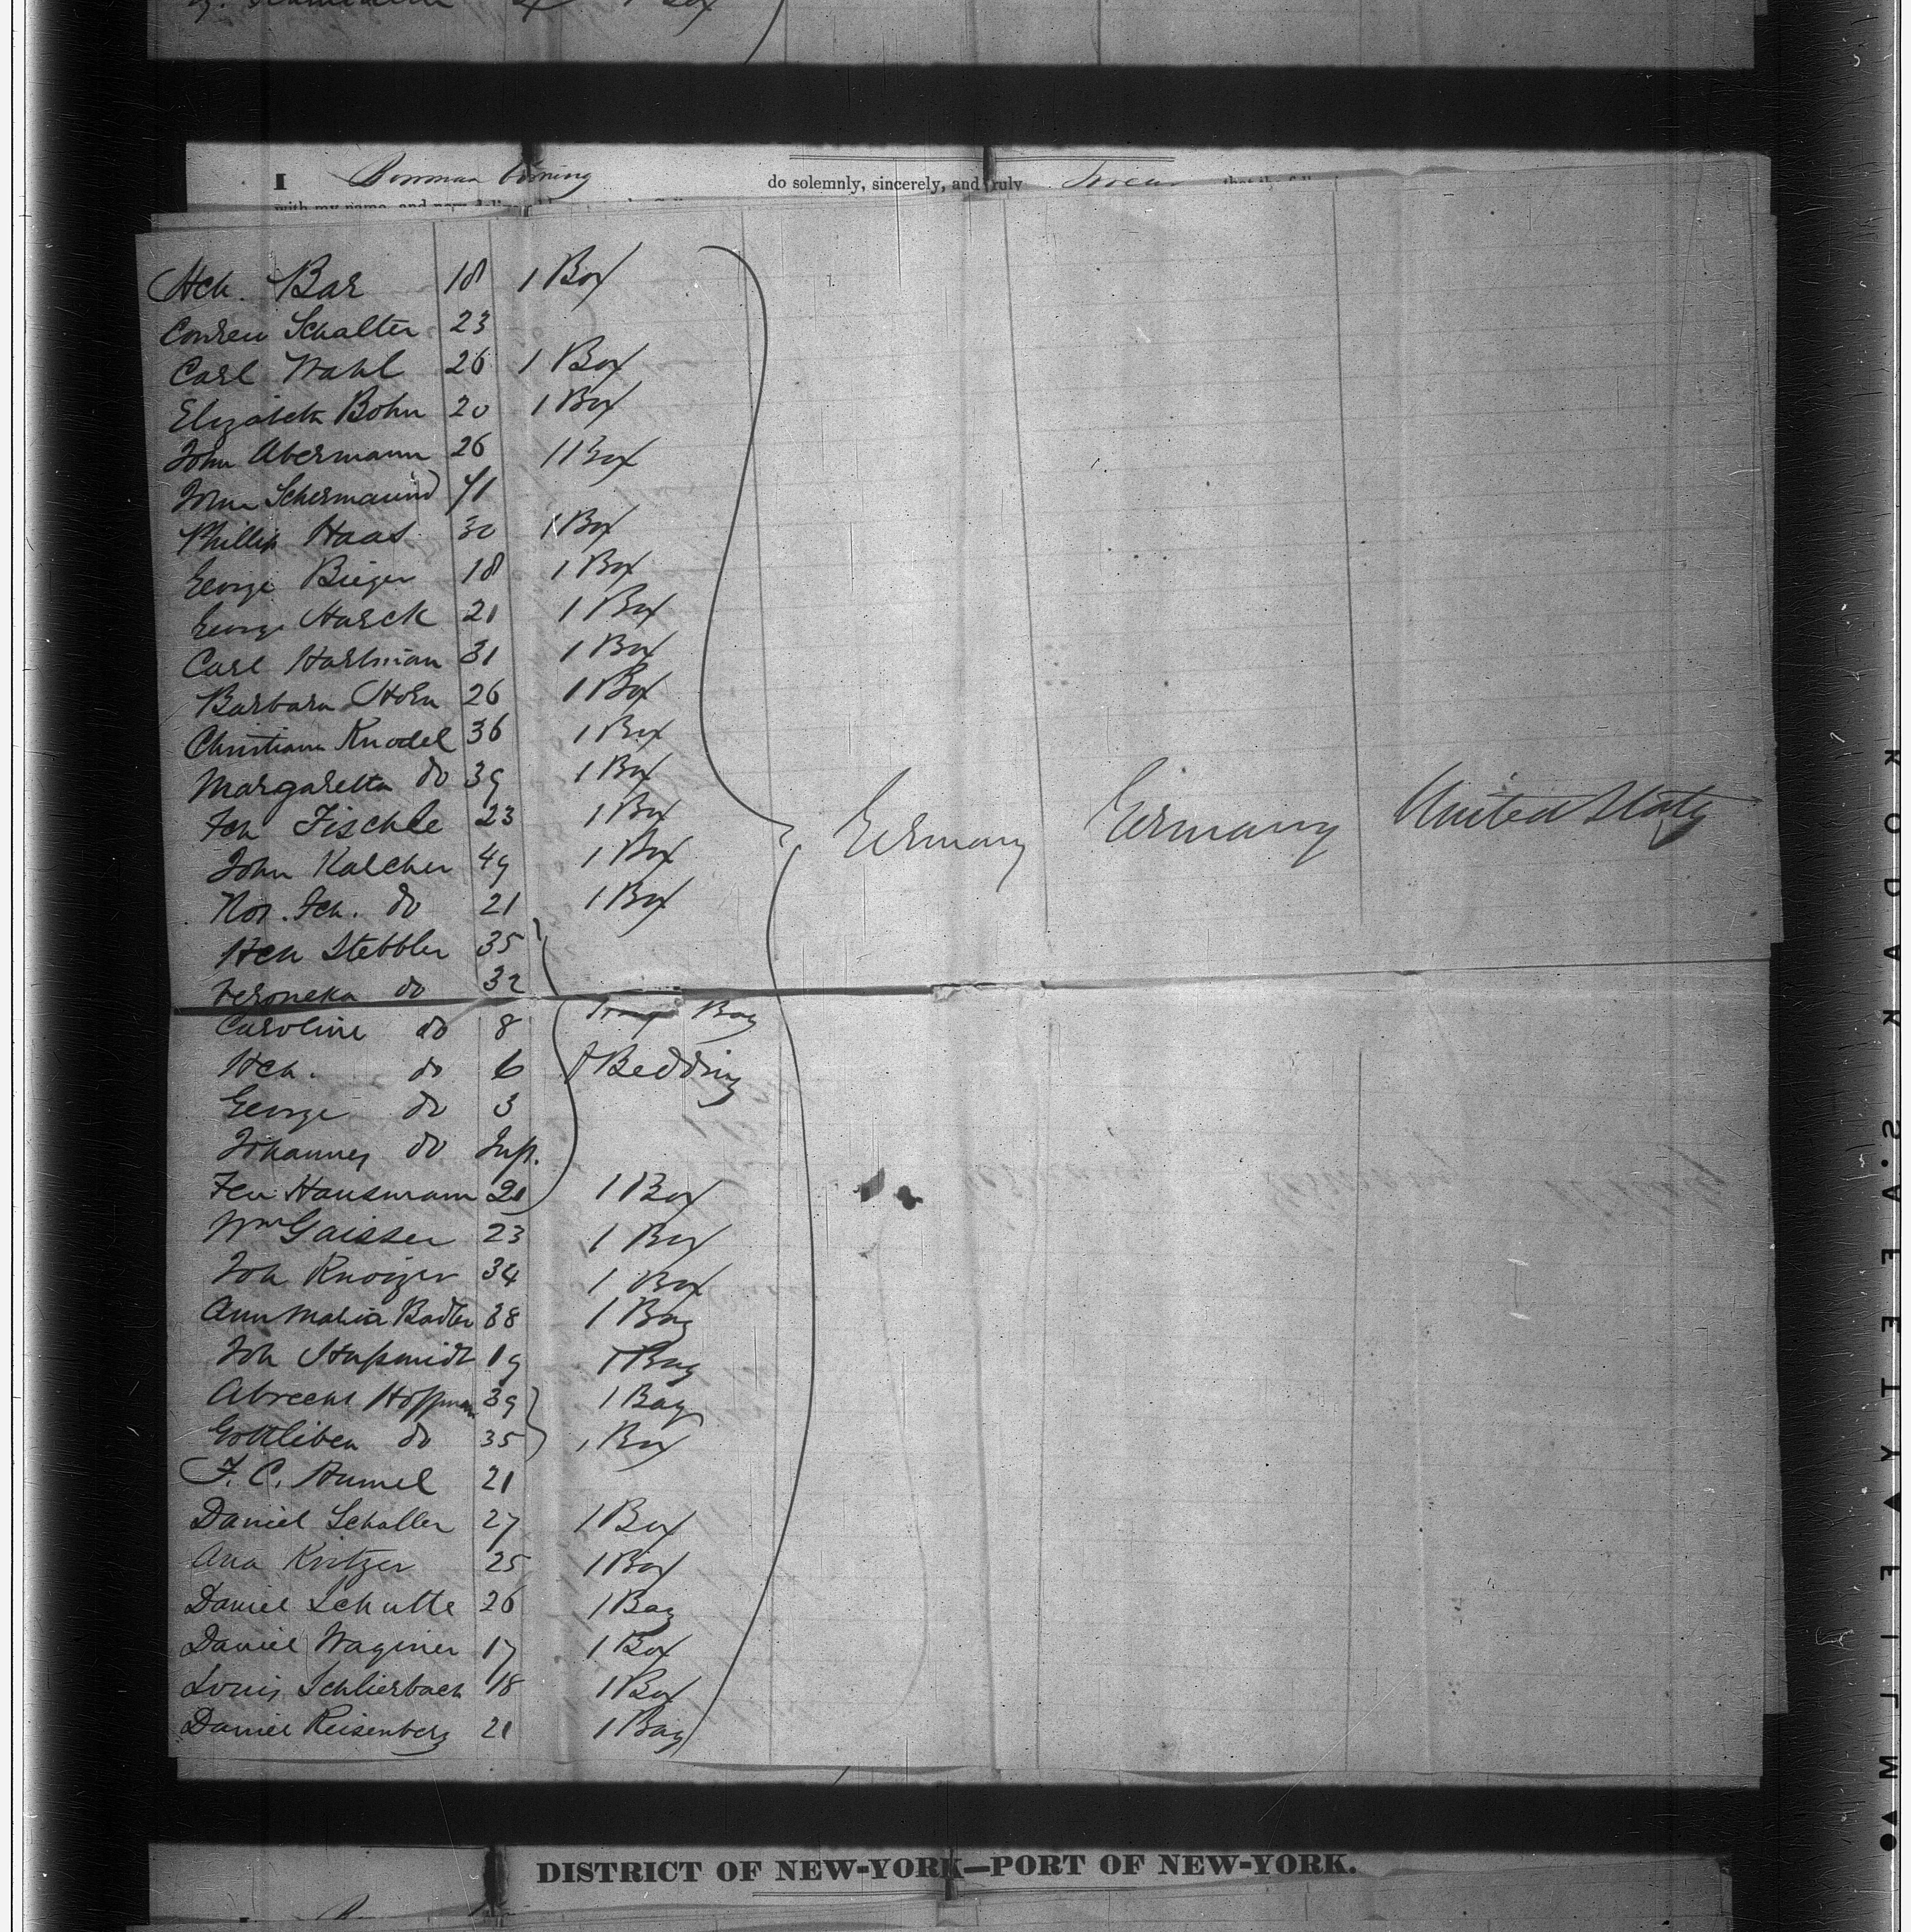 I Bowman do solemnly, sincerely, and truly
Hch. Bar 18 1 Box
Schalter 23
Carl Wahl 26 1 Box
Elizabeth Bohn 20 1 Box
John Abermann 26 1 Box
41
Phillip Haas 30 1 Box
George Bieger 18 1 Box
George Harck 21 1 Box
Carl Hartman 31 1 Box
Barbara Horn 26 1 Box
Christiane Knodel 36 1 Box
Margaretta do 39 1 Box
Fch Fischle 23 1 Box
Germany Germany United States
John Kalcher 49 1 Box
Fch. do 21 1 Box
Hch Stebbler 35
Veroneka do 32
Caroline do 8 Bag
Hch. do 6 Bedding
George do 3
Johannes do Inf.
Hausmann 21 1 Box
Wm Gaisser 23 1 Box
Joh 34 1 Box
Ann Maria Badler 38 1 Bag
Joh 19 1 Bag
Abrecht Hoffman 39 1 Bag
Gottlieben do 35 1 Box
F. C. Humel 21
Daniel Schaller 27 1 Box
Ana Kritzer 25 1 Box
Daniel Schutte 26 1 Bag
Daniel Waginer 17 1 Box
Louis Schlierbach 18 1 Box
Daniel Reisenberg 21 1 Bag
DISTRICT OF NEW-YORK—PORT OF NEW-YORK.